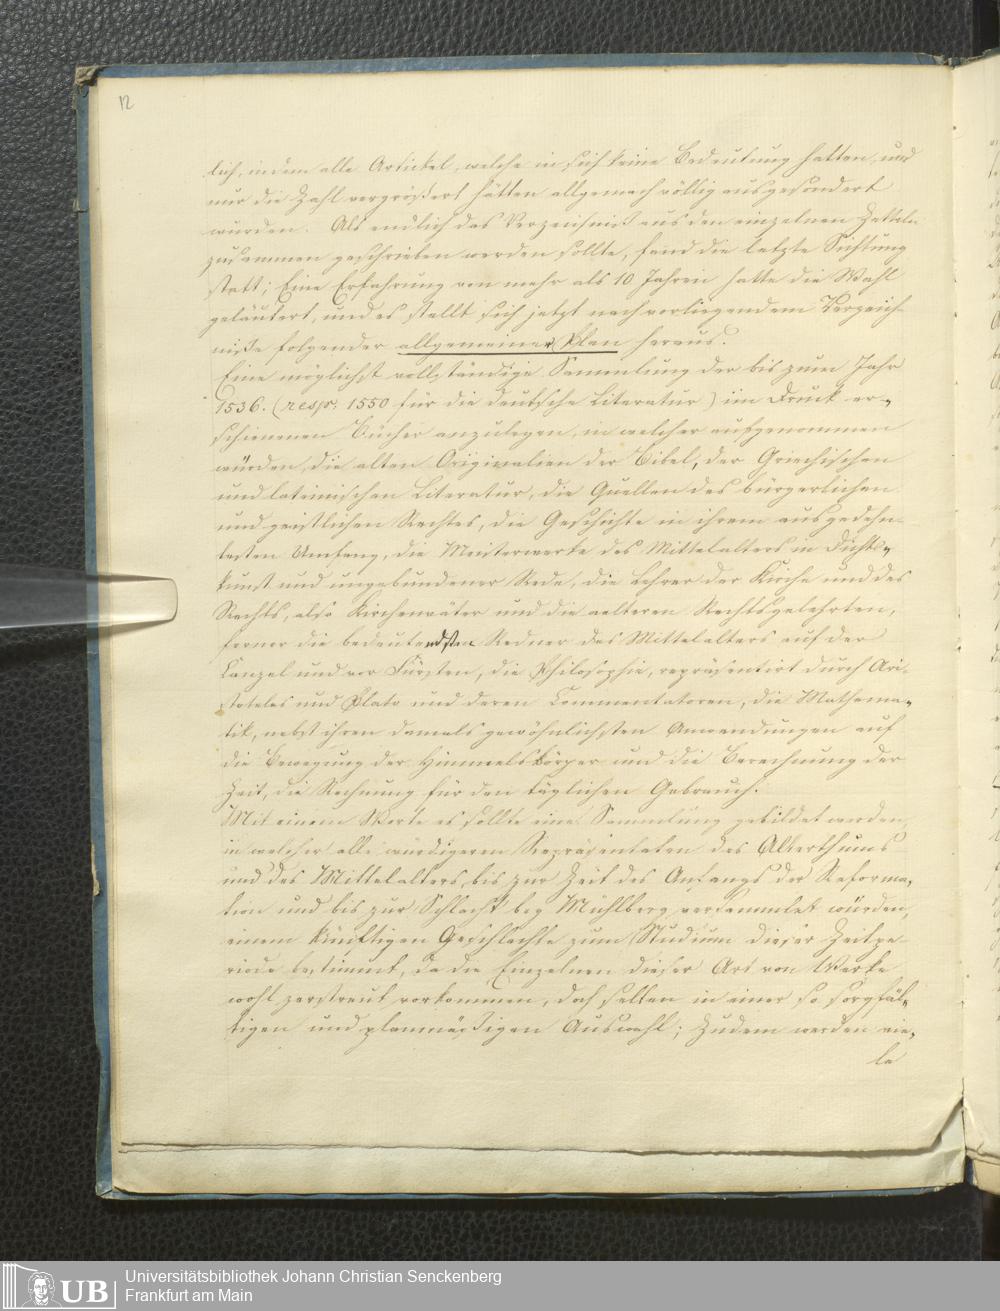 12
lich, indem alle Artickel, welche in sich keine Bedeutung hatten, und
nur die Zahl vergrößert hätten allgemach völlig ausgesondert
wurden. Als endlich das Verzeichniß aus den einzelnen Zetteln
zusammen geschrieben werden sollte, fand die letzte Sichtung
statt; Eine Erfahrung von mehr als 10 Jahren hatte die Wahl
geläutert, und es stellt sich jetzt nach vorliegendem Verzeich-
niße folgender allgemeiner Plan heraus.
Eine möglichst vollständige Sammlung der bis zum Jahr
1536. (resp. 1550 für die deutsche Literatur) im Druck er-
schienenen Bücher anzulegen, in welcher aufgenommen
würden, die alten Originalien der Bibel, der Griechischen
und lateinischen Literatur, die Quellen des bürgerlichen
und geistlichen Rechtes, die Geschichte in ihrem ausgedehn-
testen Umfang, die Meisterwerke des Mittelalters in Dicht-
kunst und ungebundener Rede, die Lehrer der Kirche und des
Rechts, also Kirchenväter und die aelteren Rechtsgelehrten,
ferner die bedeutendsten Redner des Mittelalters auf der
Canzel und vor Fürsten, die Philosophie, repräsentirt durch Ari-
stoteles und Plato und deren Commentatoren, die Mathema-
tik, nebst ihren damals gewöhnlichsten Anwendungen auf
die Bewegung der Himmelskörper und die Berechnung der
Zeit, die Rechnung für den täglichen Gebrauch.
Mit einem Worte es sollte eine Sammlung gebildet werden,
in welcher alle würdigeren Repräsentaten des Alterthums
und des Mittelalters, bis zur Zeit des Anfangs der Reforma-
tion und bis zur Schlacht bey Mühlberg versammlet würden,
einem künftigen Geschlechte zum Studium dieser Zeitpe-
riode bestimmt, da die Einzelnen dieser Art von Werke
wohl zerstreut vorkommen, doch selten in einer so sorgfäl-
tigen und planmäßigen Auswahl; Zudem werden vie-
le
UB
Universitätsbibliothek Johann Christian Senckenberg
Frankfurt am Main